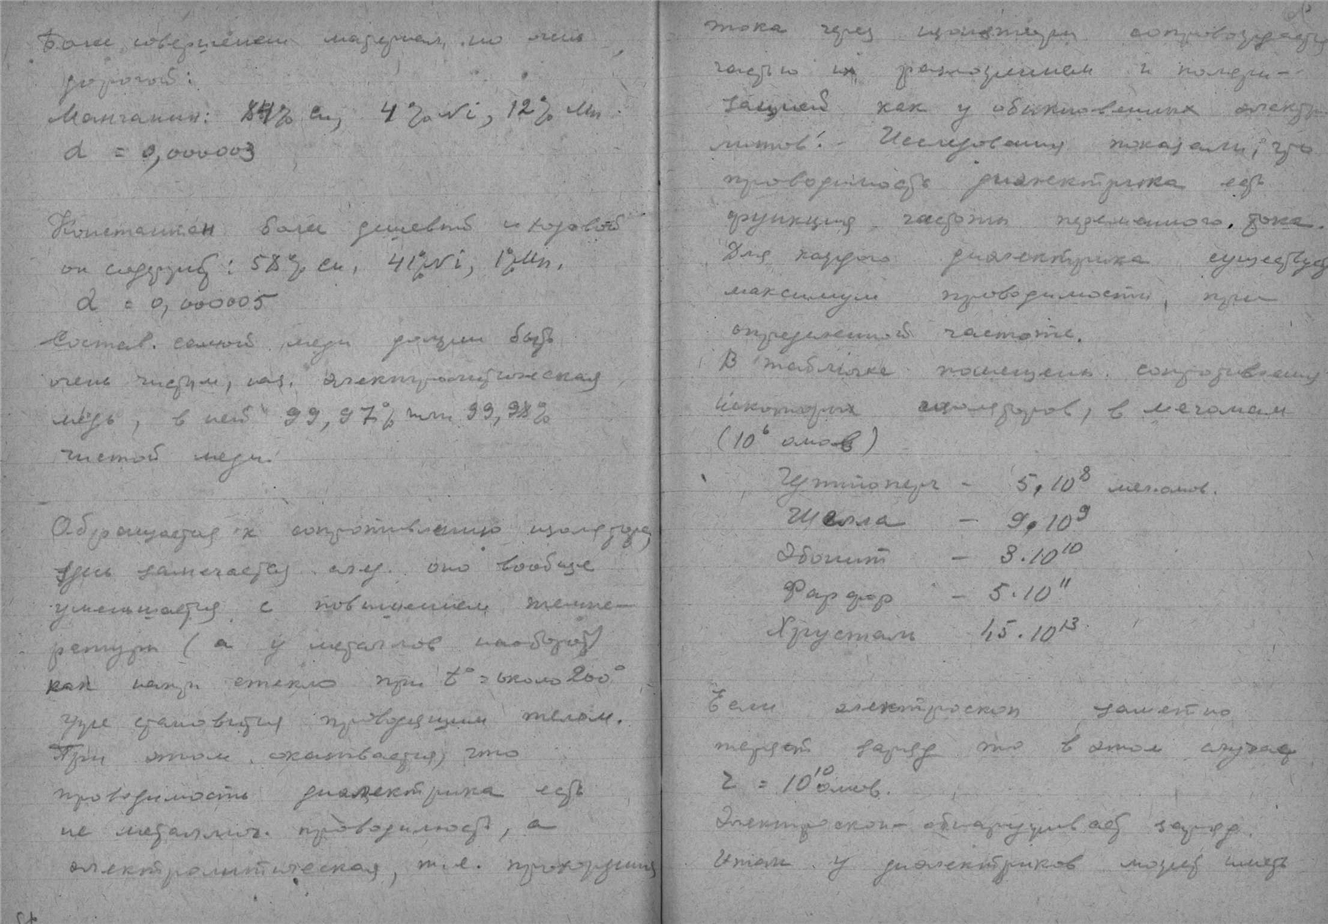 Более совершенен материал, но очень
дорогой:
Манганин: 84% Cu, 4% Ni, 12% Mn.
α = 0,000003
Константан более дешевый и ходовой
он содержит: 58% Cu, 41% Ni, 1% Mn.
α = 0,000005
Состав. самой меди должен быть
очень чистым, наз. электролитическая
медь, в ней 99,97% или 99,98%
чистой меди.
Обращается к сопротивлению изолятора,
здесь замечается след. оно вообще
уменьшается с повышением темпе-
ратуры (а у металлов наоборот)
как напр. стекло при t° = около 200°
уже становится проводящим телом.
При этом оказывается, что
проводимость диэлектрика есть
не металлич. проводимость, а
электролитическая, т.е. прохождение
тока через изоляторы сопровождается
частью их разложением и поляри-
зацией как у обыкновенных электро
литов. - Исследования показали, что
проводимость диэлектрика есть
функция частоты переменного тока.
Для каждого диэлектрика существует
максимум проводимости, при
определенной частоте.
В таблице помещены сопротивления
некоторых изоляторов, в мегомам
(10⁶ омов)
Гуттаперч - 5,10⁸ мегомов.
Шелла - 9,10⁹
Эбонит - 3·10¹⁰
Фарфор - 5·10¹¹
Хрусталь 1,5·10¹³
Если электроскоп заметно
теряет заряд то в этом случае
r = 10¹⁰ омов.
Электроскоп - обнаруживает заряд.
Итак у диэлектриков может иметь